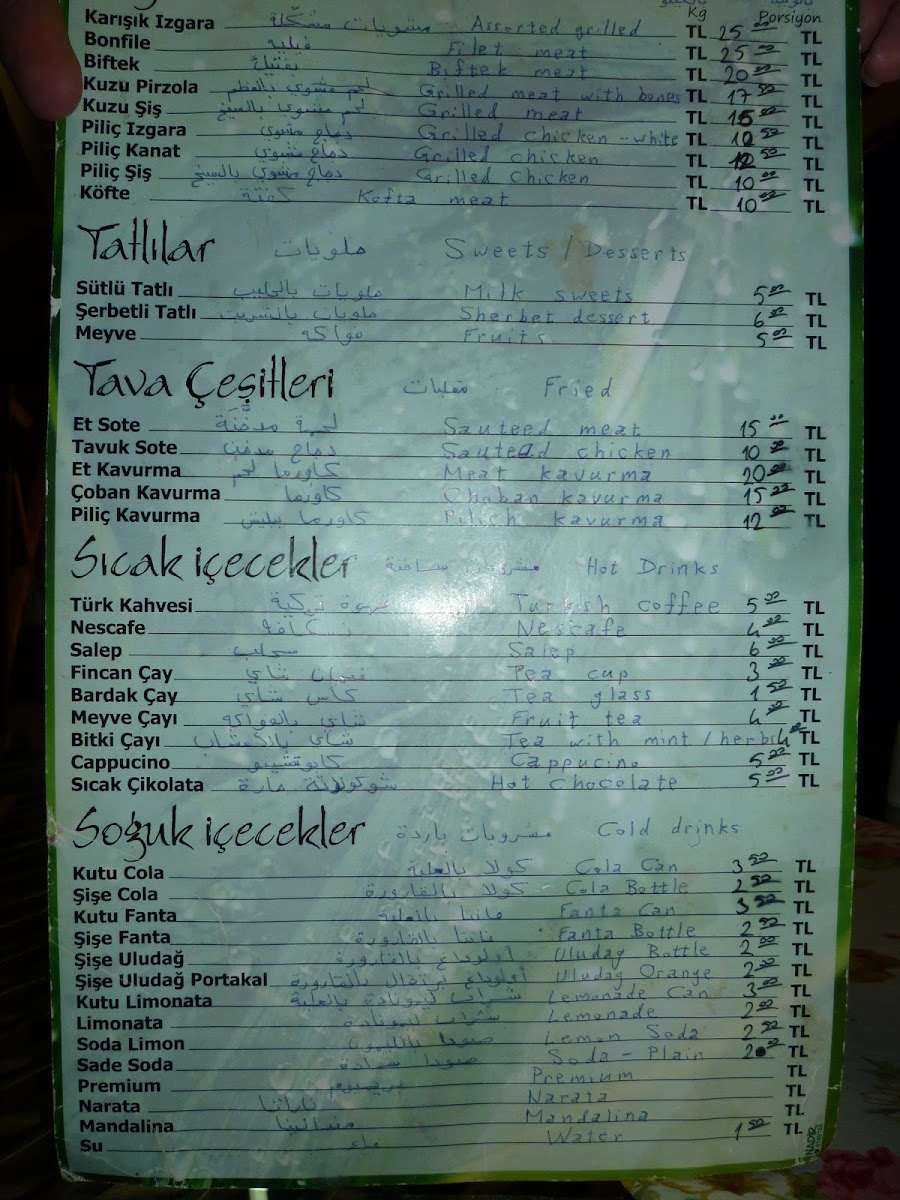 Kg Porsiyon
Karışık Izgara مشويات مشكّلة Assorted grilled TL 25 00 TL
Bonfile فيليه Filet meat TL 25 00 TL
Biftek بفتيك Biftek meat TL 20 00 TL
Kuzu Pirzola لحم مشوي بالعظم Grilled meat with bones TL 17 50 TL
Kuzu Şiş لحم مشوي بالسيخ Grilled meat TL 15 00 TL
Piliç Izgara دجاج مشوي Grilled chicken - white TL 12 50 TL
Piliç Kanat دجاج مشوي Grilled chicken TL 12 50 TL
Piliç Şiş دجاج مشوي بالسيخ Grilled Chicken TL 10 00 TL
Köfte كفتة Kofta meat TL 10 00 TL
Tatlılar حلويات Sweets / Desserts
Sütlü Tatlı حلويات بالحليب Milk sweets 5 00 TL
Şerbetli Tatlı حلويات بالشربت Sherbet dessert 6 00 TL
Meyve فواكه Fruits 5 00 TL
Tava Çeşitleri مقليات Fried
Et Sote لحمة Sauteed meat 15 00 TL
Tavuk Sote دجاج Sauteed chicken 10 00 TL
Et Kavurma كاورما لحم Meat kavurma 20 00 TL
Çoban Kavurma كاورما Choban kavurma 15 00 TL
Piliç Kavurma كاورما بيليتش Pilich kavurma 12 00 TL
Sıcak içecekler مشروبات ساخنة Hot Drinks
Türk Kahvesi قهوة تركية Turkish coffee 5 00 TL
Nescafe نسكافه Nescafe 4 00 TL
Salep سحلب Salep 6 00 TL
Fincan Çay فنجان شاي Tea cup 3 00 TL
Bardak Çay كأس شاي Tea glass 1 50 TL
Meyve Çayı شاي بالفواكه Fruit tea 4 00 TL
Bitki Çayı شاي بالأعشاب Tea with mint / herbs 4 00 TL
Cappucino كابوتشينو Cappucino 5 00 TL
Sıcak Çikolata شوكولاتة حارة Hot Chocolate 5 00 TL
Soğuk içecekler مشروبات باردة Cold drinks
Kutu Cola كولا بالعلبة Cola Can 3 50 TL
Şişe Cola كولا بالقارورة Cola Bottle 2 50 TL
Kutu Fanta فانتا بالعلبة Fanta Can 3 50 TL
Şişe Fanta فانتا بالقارورة Fanta Bottle 2 50 TL
Şişe Uludağ أولوداغ بالقارورة Uludag Bottle 2 00 TL
Şişe Uludağ Portakal أولوداغ برتقال بالقارورة Uludag Orange 2 00 TL
Kutu Limonata شراب ليمونادة بالعلبة Lemonade Can 3 00 TL
Limonata شراب ليمونادة Lemonade 2 00 TL
Soda Limon صودا بالليمون Lemon Soda 2 50 TL
Sade Soda صودا سادة Soda - Plain 2 00 TL
Premium بريميوم Premium TL
Narata ناراتا Narata TL
Mandalina مندالينا Mandalina
Su ماء Water 1 50 TL